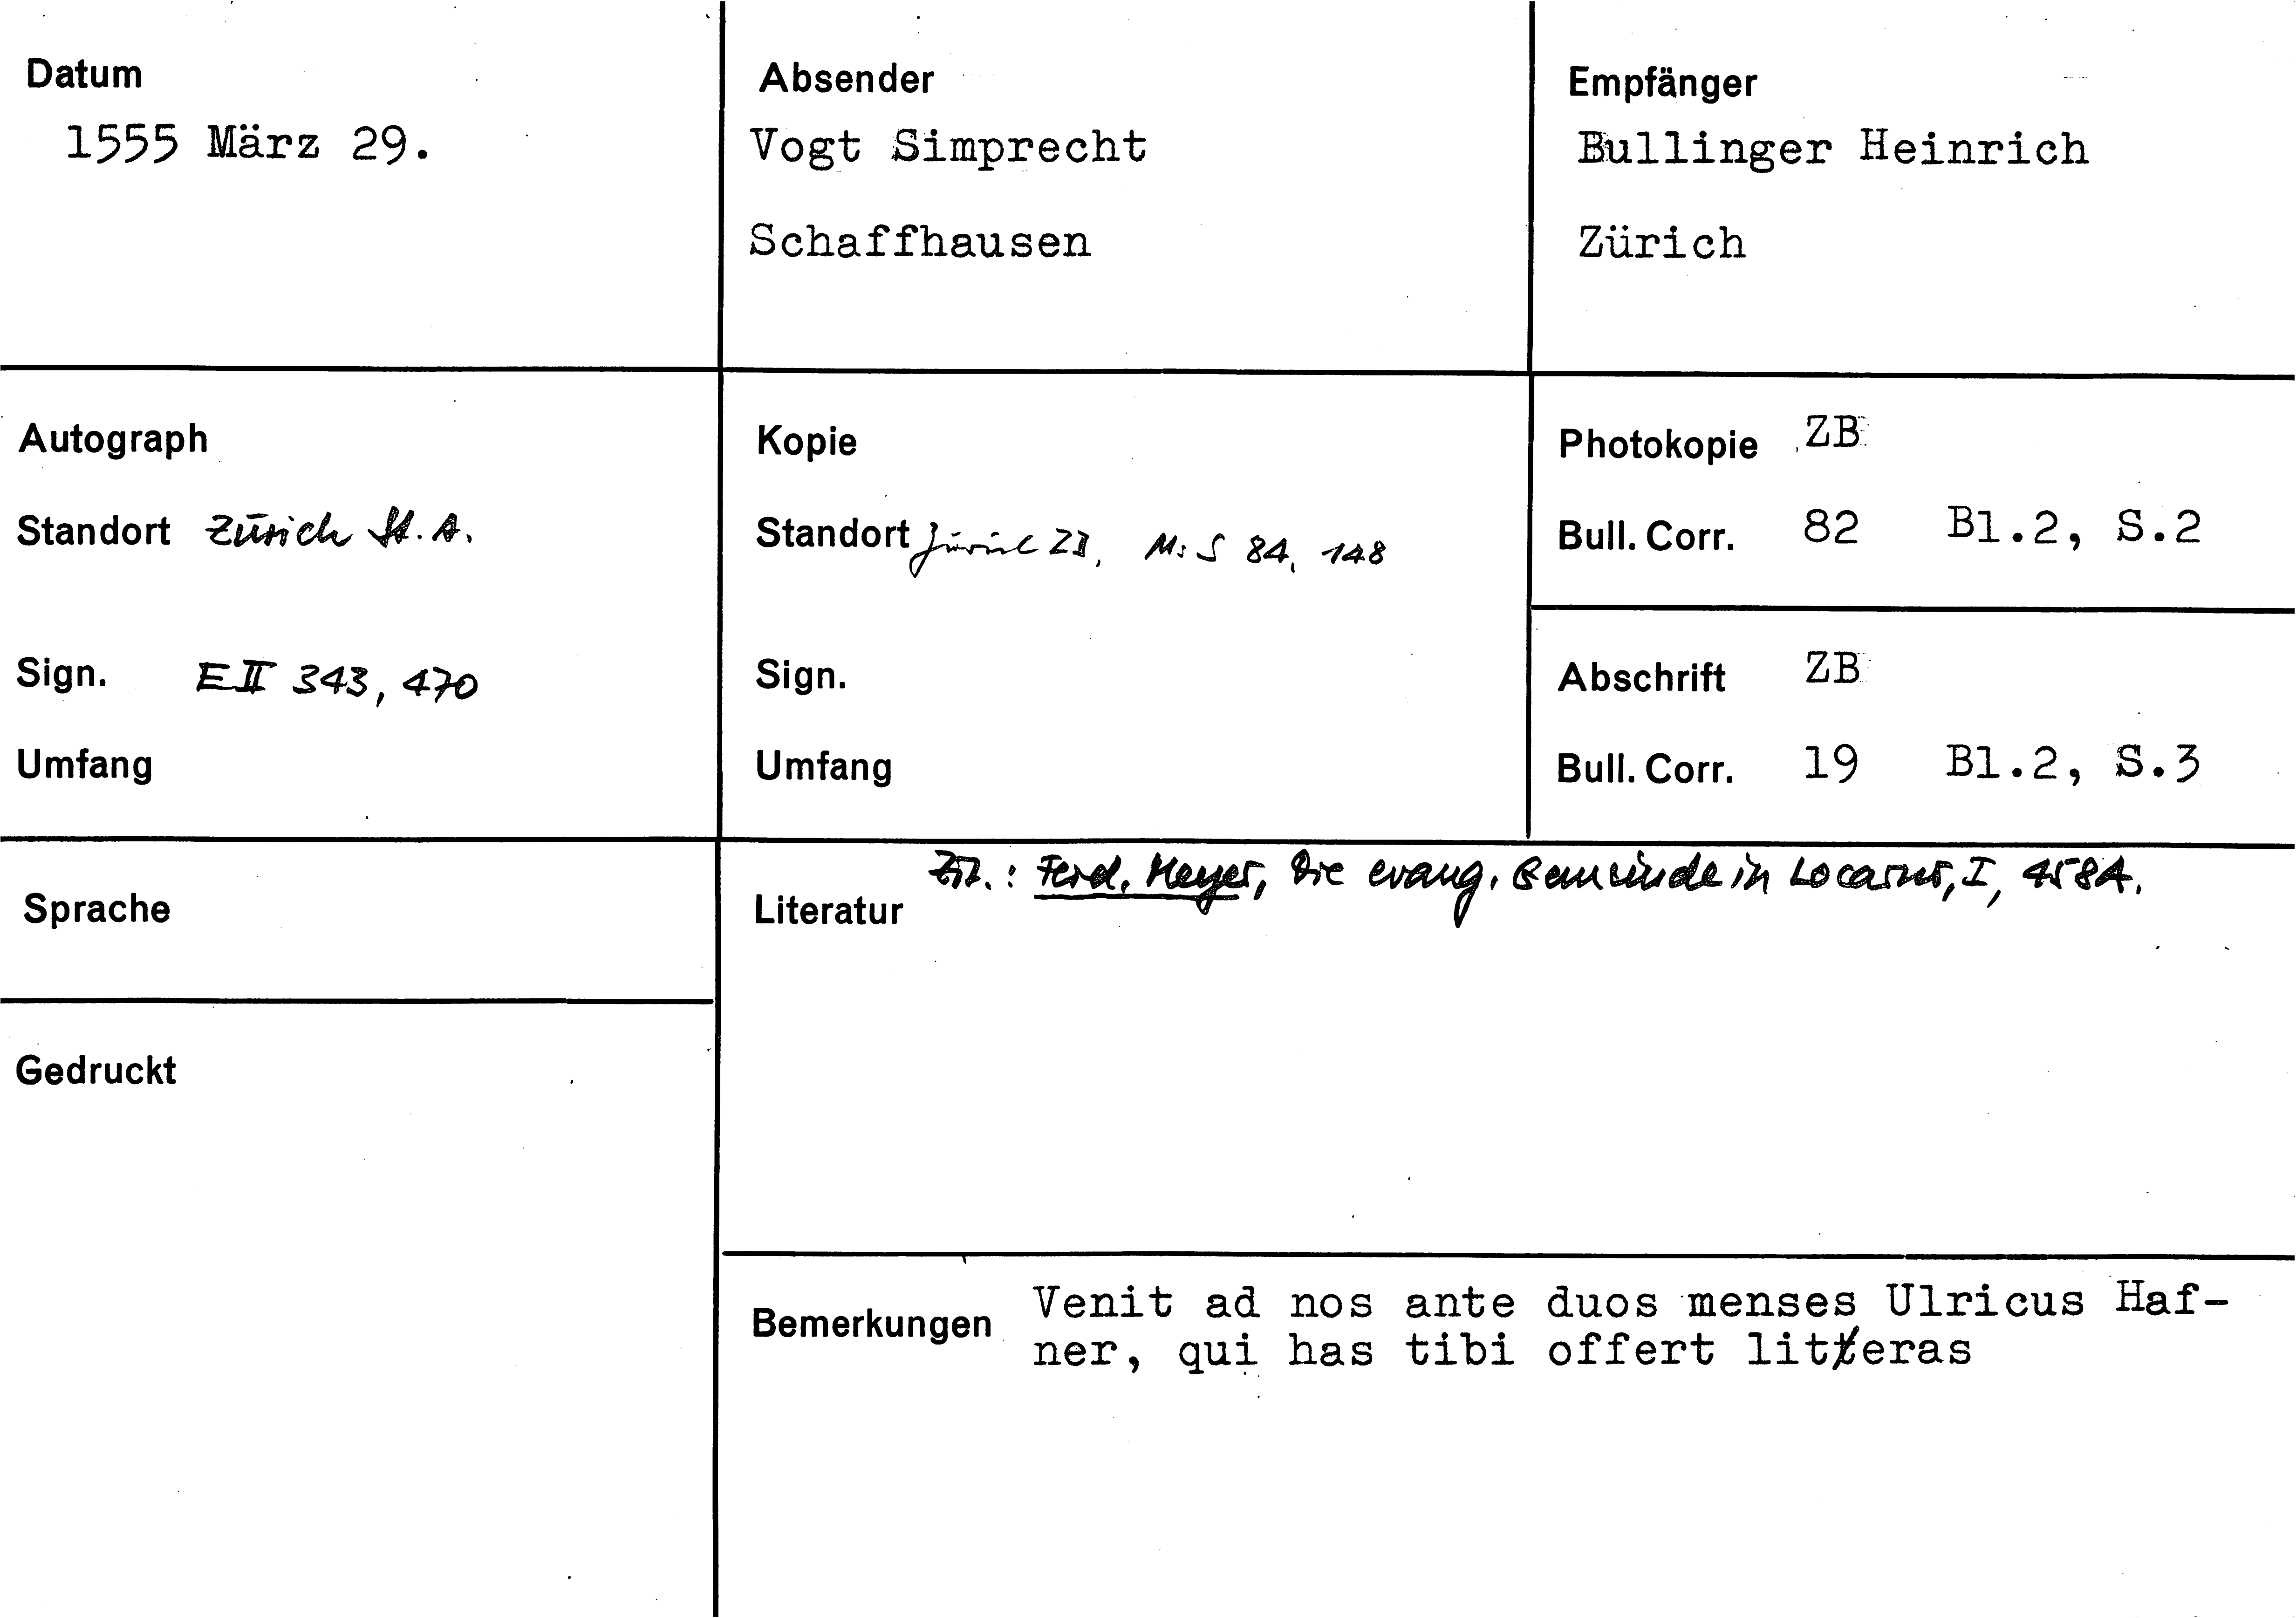 Datum
1555 März 29.
Absender
Vogt Simprecht
Schaffhausen
Empfänger
Bullinger Heinrich
Zürich
Autograph
Standort Zürich St.A.
Sign. E II 343, 470
Umfang
Kopie
Standort Zürich ZB, Ms S 84, 148
Sign.
Umfang
Photokopie ZB
Bull. Corr. 82 Bl.2, S.2
Abschrift ZB
Bull. Corr. 19 Bl.2, S.3
Sprache
Gedruckt
Zit.: Ferd. Meyer, Die evang. Gemeinde in Locarno, I, 458A.
Literatur
Bemerkungen Venit ad nos ante duos menses Ulricus Haf-
ner, qui has tibi offert litteras